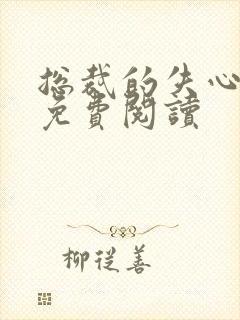 总裁的失心
免費閱讀
柳從善